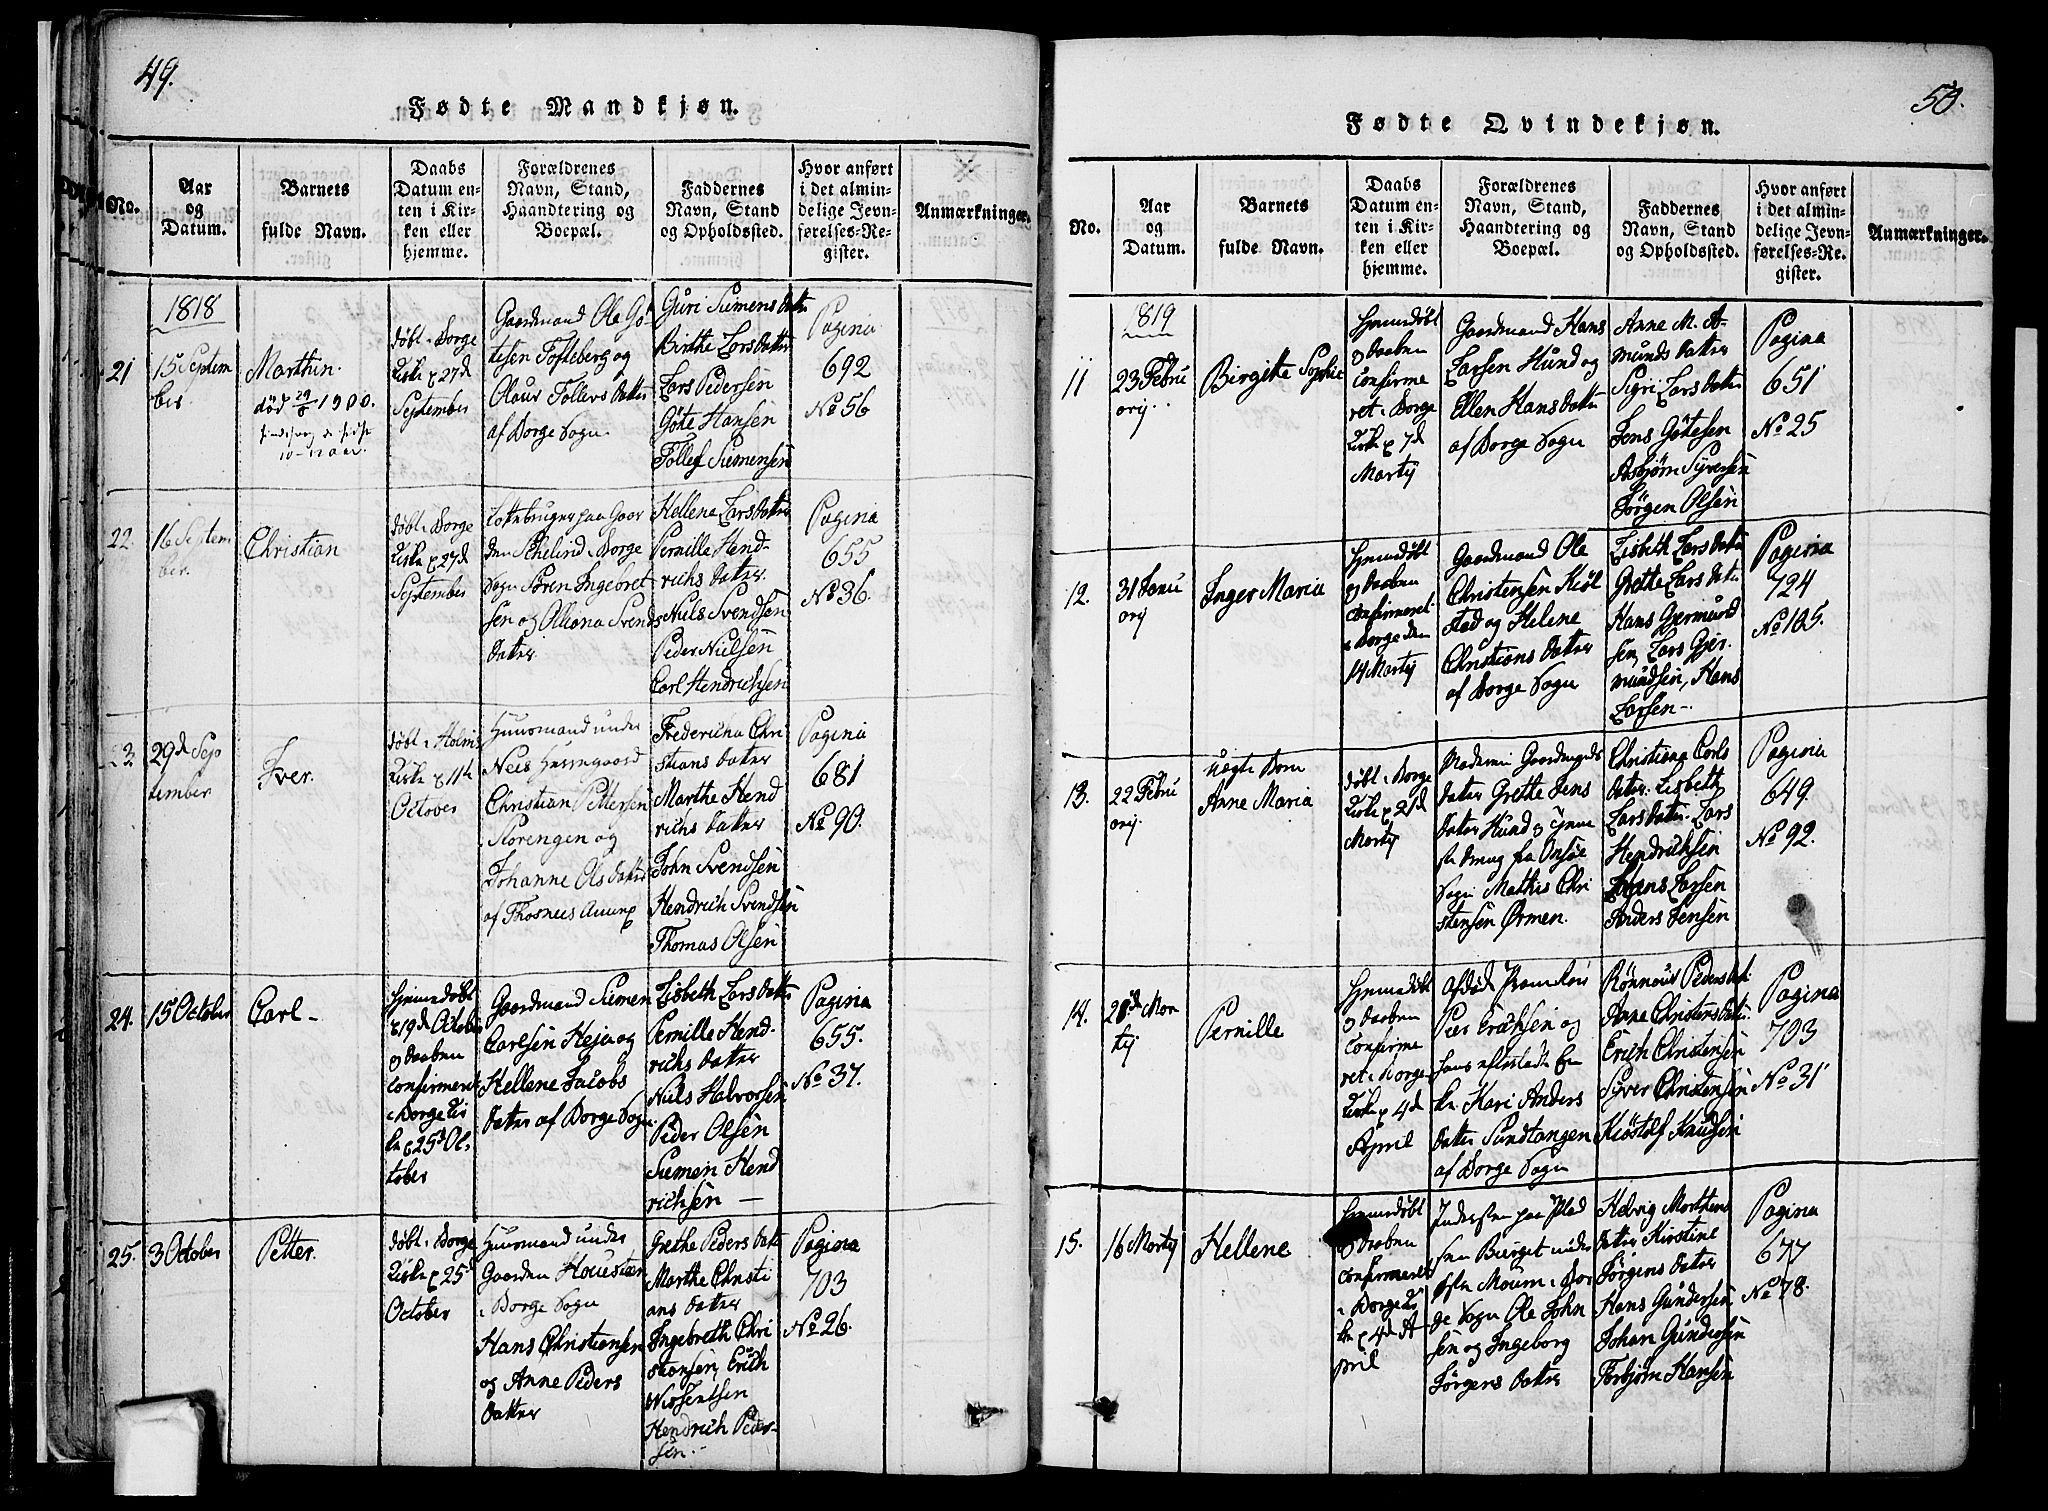 49.
Fødte Mandkjøn.
No.
Aar
og
Datum.
Barnets
fulde Navn.
Daabs
Datum en-
ten i Kir-
ken eller
hjemme.
Forældrenes
Navn, Stand,
Haandtering og
Boepæl.
Faddernes
Navn, Stand
og Opholdssted.
Hvor anført
i det almin-
delige Jevn-
førelses-Re-
gister.
Anmærkninger.
1818
21
15 Septem
ber
Marthin.
død 29/8 1900.
døbt i Borge
Kirke p 27d
September
Gaardmand Ole Gö-
tesen Tofteberg og
Olaur Tollevs datter
af Borge Sogn
Guri Simens datter
Birthe Lars datter
Lars Pedersen
Göte Hansen
Tollef Simensen
Pagina
692
No 56
22
16 Septem
ber.
Christian
døbt i Borge
Kirke p 27d
September
paa Gaar
den i Borge
Sogn Søren Ingebret
sen og Svends
datter
Hellene Lars datter
Pernille Hend-
richs datter.
Niels Svendsen
Peder Nielsen
Carl Hendrichsen
Pagina
655
No 36.
23
29d Sep
tember
Iver.
døbt i Holms
Kirke p 11te
October
Huusmand under
Neis
Christian Pettersen
Storengen og
Johanne Ols datter
af Thosnees
Fredericha Chri
stians datter
Marthe Hend
richs datter
John Svendsen
Hendrich Svendsen
Thomas Olsen
Pagina
681
No 90.
24.
15 October
Carl -
Hjemmedøbt
p 19d October
og daaben
confirmeret
i Borge Kir
ke p 25d Oc-
tober
Gaardmand Simen
Carlsen Heje og
Hellene Jacobs
datter af Borge Sogn.
Lisbeth Lars datter
Pernille Hend-
richs datter
Niels Halvorsen
Peder Olsen
Simen Hend
richsen —
Pagina
655.
No 37.
25.
3 October
Petter.
døbt i Borge
Kirke p 25d
October
Huusmand under
Gaarden
i Borge Sogn
Hans Christiansen
og Anne Peders
datter
Grethe Peders datt
Marthe Christi
ans datter
Ingebreth Chri
stiansen, Erich
Hendrich Peder-
sen.-
Pagina
703
No 26.
50.
Fødte Qvindekjøn.
No.
Aar
og
Datum.
Barnets
fulde Navn.
Daabs
Datum en-
ten i Kir-
ken eller
hjemme.
Forældrenes
Navn, Stand,
Haandtering og
Boepæl.
Faddernes
Navn, Stand
og Opholdssted.
Hvor anført
i det almin-
delige Jevn-
førelses-Re-
gister.
Anmærkninger.
1819
11
23 Febru
arij
Birgitte Sophie
Hjemmedøbt
og daaben
confirme
ret i Borge
Kirke p 7d
Martij
Gaardmand Hans
Larsen Hund og
Ellen Hans datter
af Borge Sogn
Anne M. A-
munds datter
Sigri Lars datter
Jens Götesen
Asbjørn Syversen
Jörgen Olsen
Pagina
651
No 25
12.
31 Janu
arij
Inger Maria
Hjemmedøbt
og daaben
confirmeret
i Borge den
14 Martij
Gaardmand Ole
Christensen Kiöl
stad og Helene
Christians datter
af Borge Sogn
Lisbeth Lars datter
Grethe Lars datter
Hans Gjermund
sen, Lars Gjer-
mundsen, Hans
Larsen -.
Pagina
724
No 105.
13.
22 Febru
arij.
Uægte Barn
Anne Maria
døbt i Borge
Kirke p 21d
Martij
Gaardmands
datter Grethe Jens
datter Hund og
fra Onsøe
Sogn Mathis Chri
stensen Ørmen.
Christiana Carls
datter. Lisbeth
Lars datter. Lars
Hendrichsen
Hans Larsen
Anders Jensen
Pagina
649.
No 92.
14.
Mar
tij
Pernille
Hjemmedøbt
og daaben
confirme
ret i Borge
Kirke p 4d
April
Afdød
Peer Erichsen og
hans efterladte En
ke Kari Anders
datter Sundtangen
af Borge Sogn
Rönnoug Peders datt.
Anne Christens datter
Erich Christensen
Syver Christensen
Kiöstolf Knudsen
Pagina
703
No 31
15.
16 Martij
Hellene
Hjemmedøbt
og daaben
confirmeret
i Borge Kir
ke p 4d A-
pril
Inderster paa Plad
sen Bierget under
Østre Moum i Bor
ge Sogn Ole John
sen og Ingeborg
Jörgens datter
Helvig Marthens
datter Kirstine
Jörgens datter
Hans Gundersen
Johan Gundersen
Torbjörn Hansen
Pagina
677
No 78.